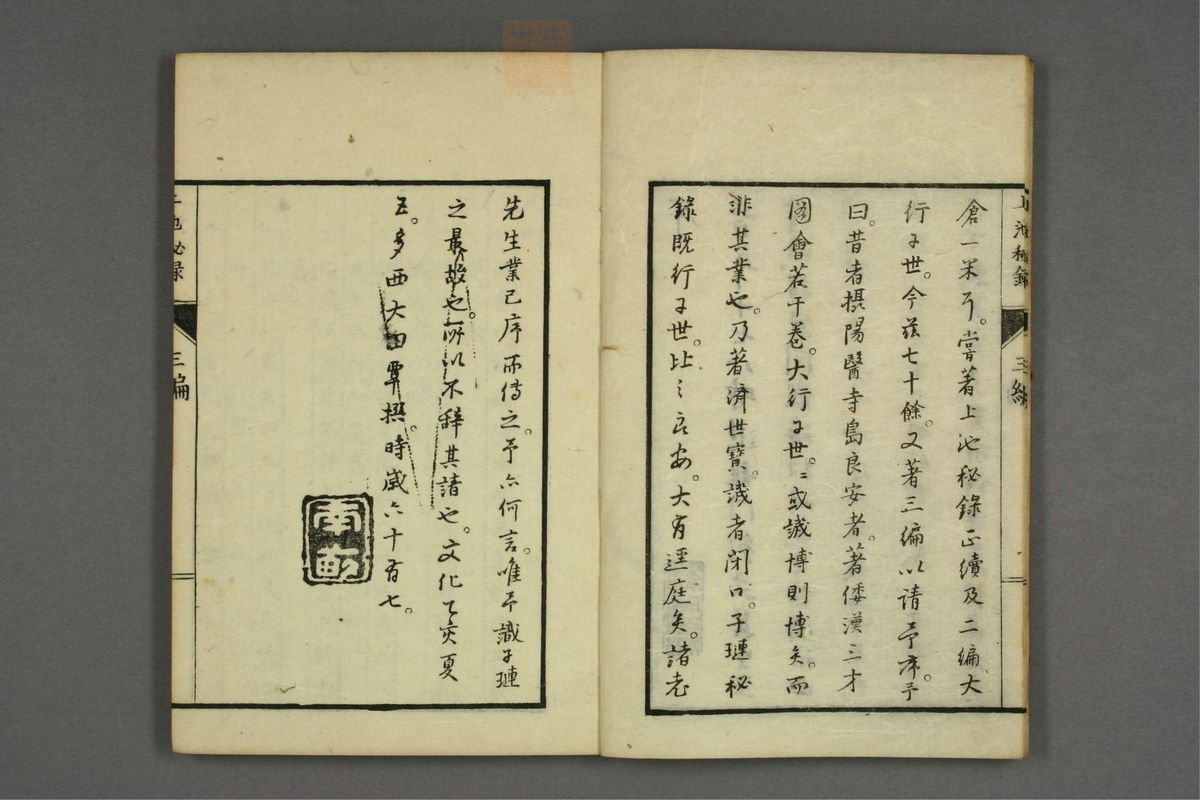 上池秘錄
三編
倉一罙爾。嘗著上池秘錄正續及二編大
行于世。今茲七十餘。又著三編以請予序。予
曰。昔者摂陽醫寺島良安者。著倭漢三才
圖會若干卷。大行于世。世或誠博則博矣。而
非其業也。乃著濟世寶。誠者閉口。子璉秘
錄既行于世。比之良安。大有逕庭矣。諸老
先生業已序而傳之。予亦何言。唯予識子璉
之最故也。所以不辭其請也。文化乙亥夏
五。多西大田覃撰。時歲六十有七。
上池秘錄
三編